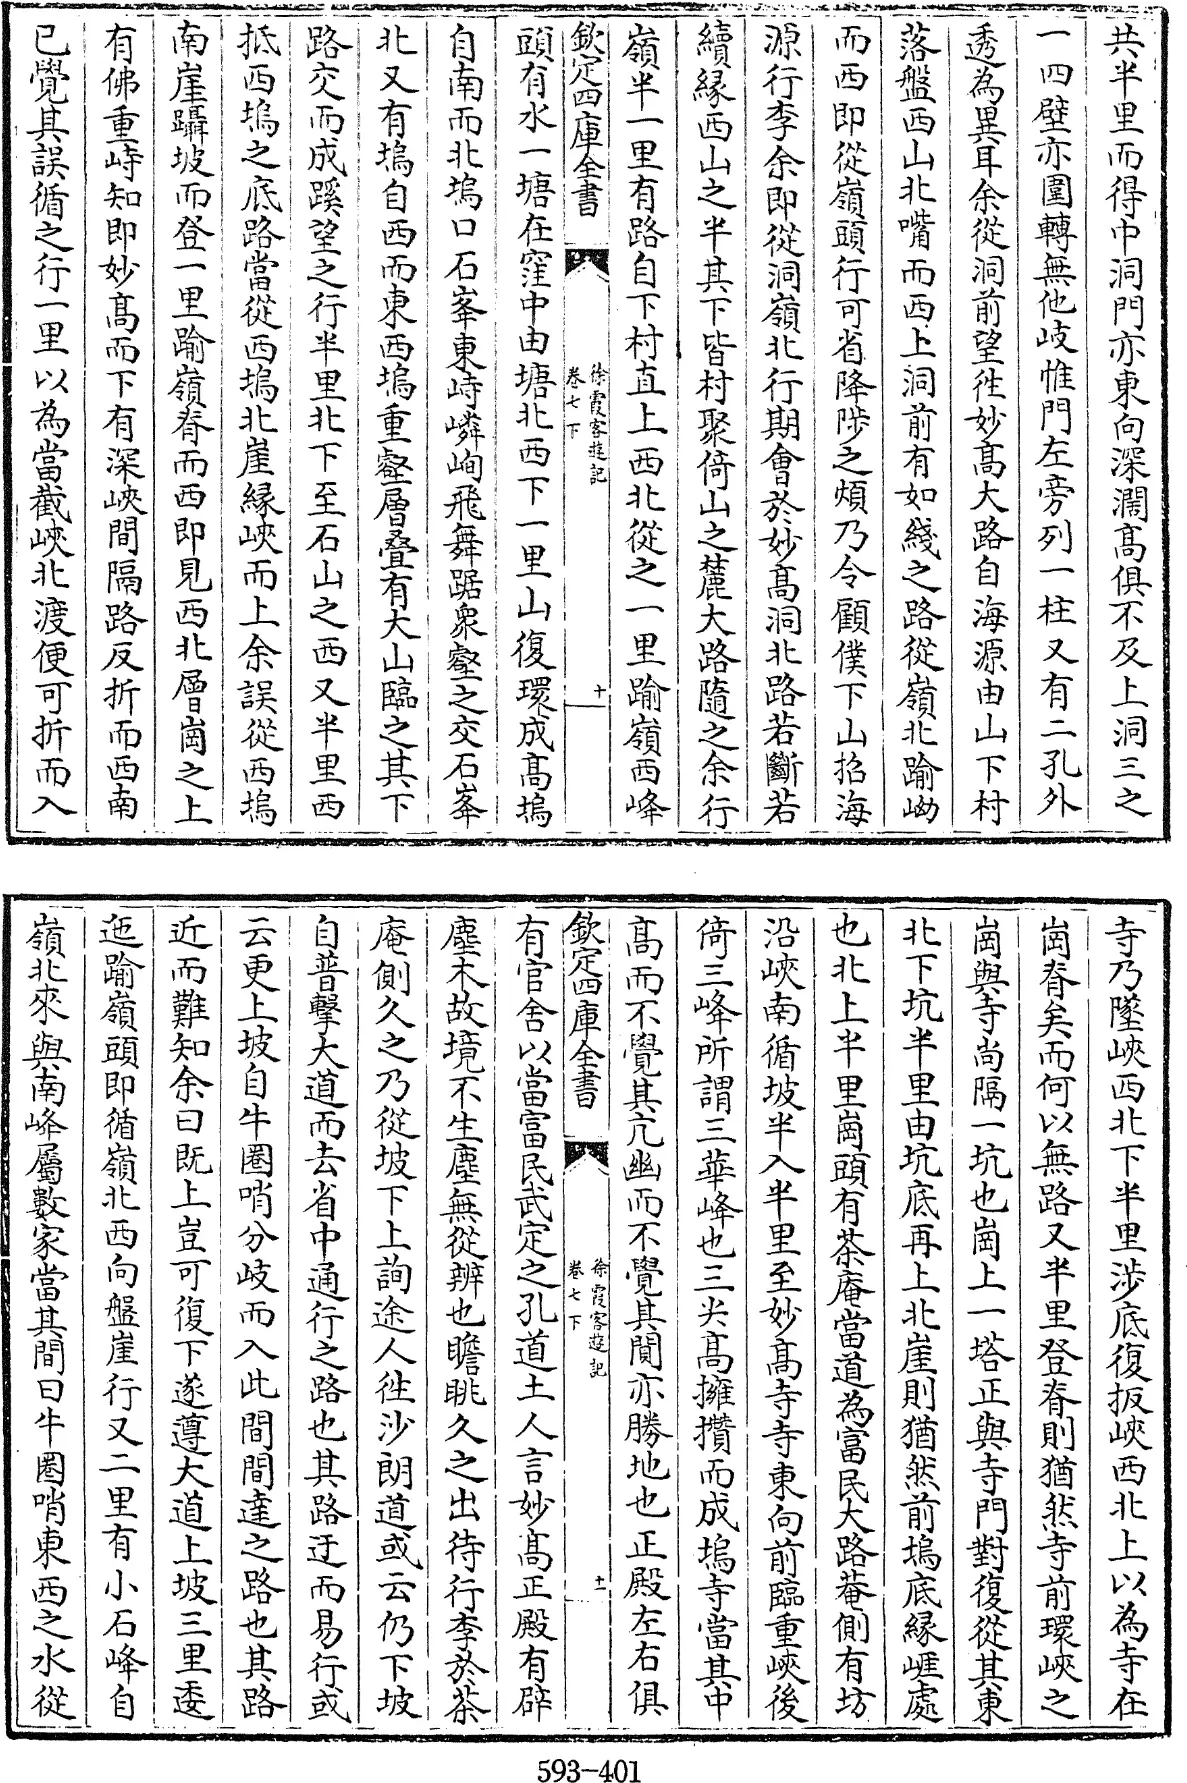 共半里而得巾洞門亦東向深濶髙俱不及上洞三之
一四壁亦圍轉無他岐惟門左旁列一柱又有二孔外
透為異耳余從洞前望徃妙髙大路自海源由山下村
落盤西山北嘴而西上洞前有如綫之路從嶺北踰坳
而西即從嶺頭行可省降陟之煩乃令顧僕下山招海
源行李余即從洞嶺北行期會於妙髙洞北路若斷若
續縁西山之半其下皆村聚倚山之麓大路隨之余行
嶺半一里有路自下村直上西北從之一里踰嶺西峰
欽定四庫全書
徐霞客遊記
卷七下
十
頭有水一塘在窪中由塘北西下一里山復環成髙塢
自南而北塢口石峯東峙嶙峋飛舞踞衆壑之交石峯
北又有塢自西而東西塢重壑層疊有大山臨之其下
路交而成蹊望之行半里北下至石山之西又半里西
抵西塢之底路當從西塢北崖縁峽而上余誤從西塢
南崖躡坡而登一里踰嶺脊而西即見西北層崗之上
有佛重峙知即妙髙而下有深峽間隔路反折而西南
已覺其誤循之行一里以為當截峽北渡便可折而入
寺乃墜峽西北下半里渉底復扳峽西北上以為寺在
崗脊矣而何以無路又半里登脊則猶然寺前環峽之
崗與寺尚隔一坑也崗上一塔正與寺門對復從其東
北下坑半里由坑底再上北崖則猶然前塢底縁崕處
也北上半里崗頭有茶庵當道為富民大路菴側有坊
沿峽南循坡半入半里至妙髙寺寺東向前臨重峽後
倚三峰所謂三華峰也三尖髙擁攢而成塢寺當其中
髙而不覺其亢幽而不覺其閴亦勝地也正殿左右俱
欽定四庫全書
徐霞客遊記
卷七下
十一
有官舍以當富民武定之孔道土人言妙髙正殿有辟
塵木故境不生塵無從辨也瞻眺久之出待行李於茶
庵側久之乃從坡下上詢途人徃沙朗道或云仍下坡
自普擊大道而去省中通行之路也其路迂而易行或
云更上坡自牛圈哨分岐而入此間間達之路也其路
近而難知余曰既上豈可復下遂遵大道上坡三里逶
迤踰嶺頭即循嶺北西向盤崖行又二里有小石峰自
嶺北來與南峰屬數家當其間曰牛圈哨東西之水從
593-401